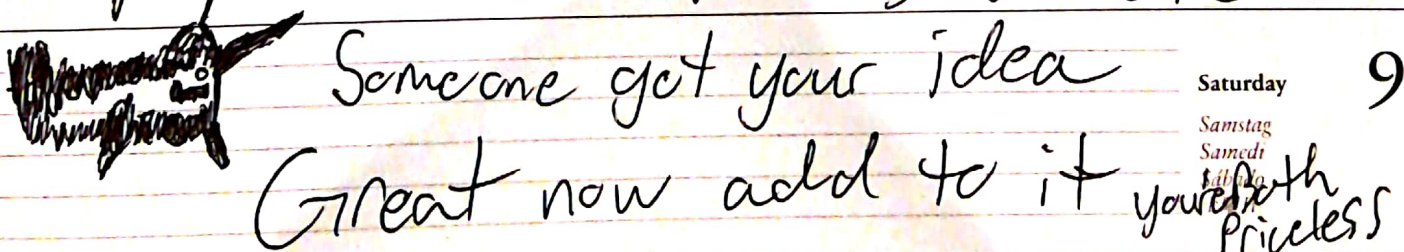 Someone got your idea
Saturday 9
Samstag
Samedi
Sábado
Great now add to it you're both
Priceless